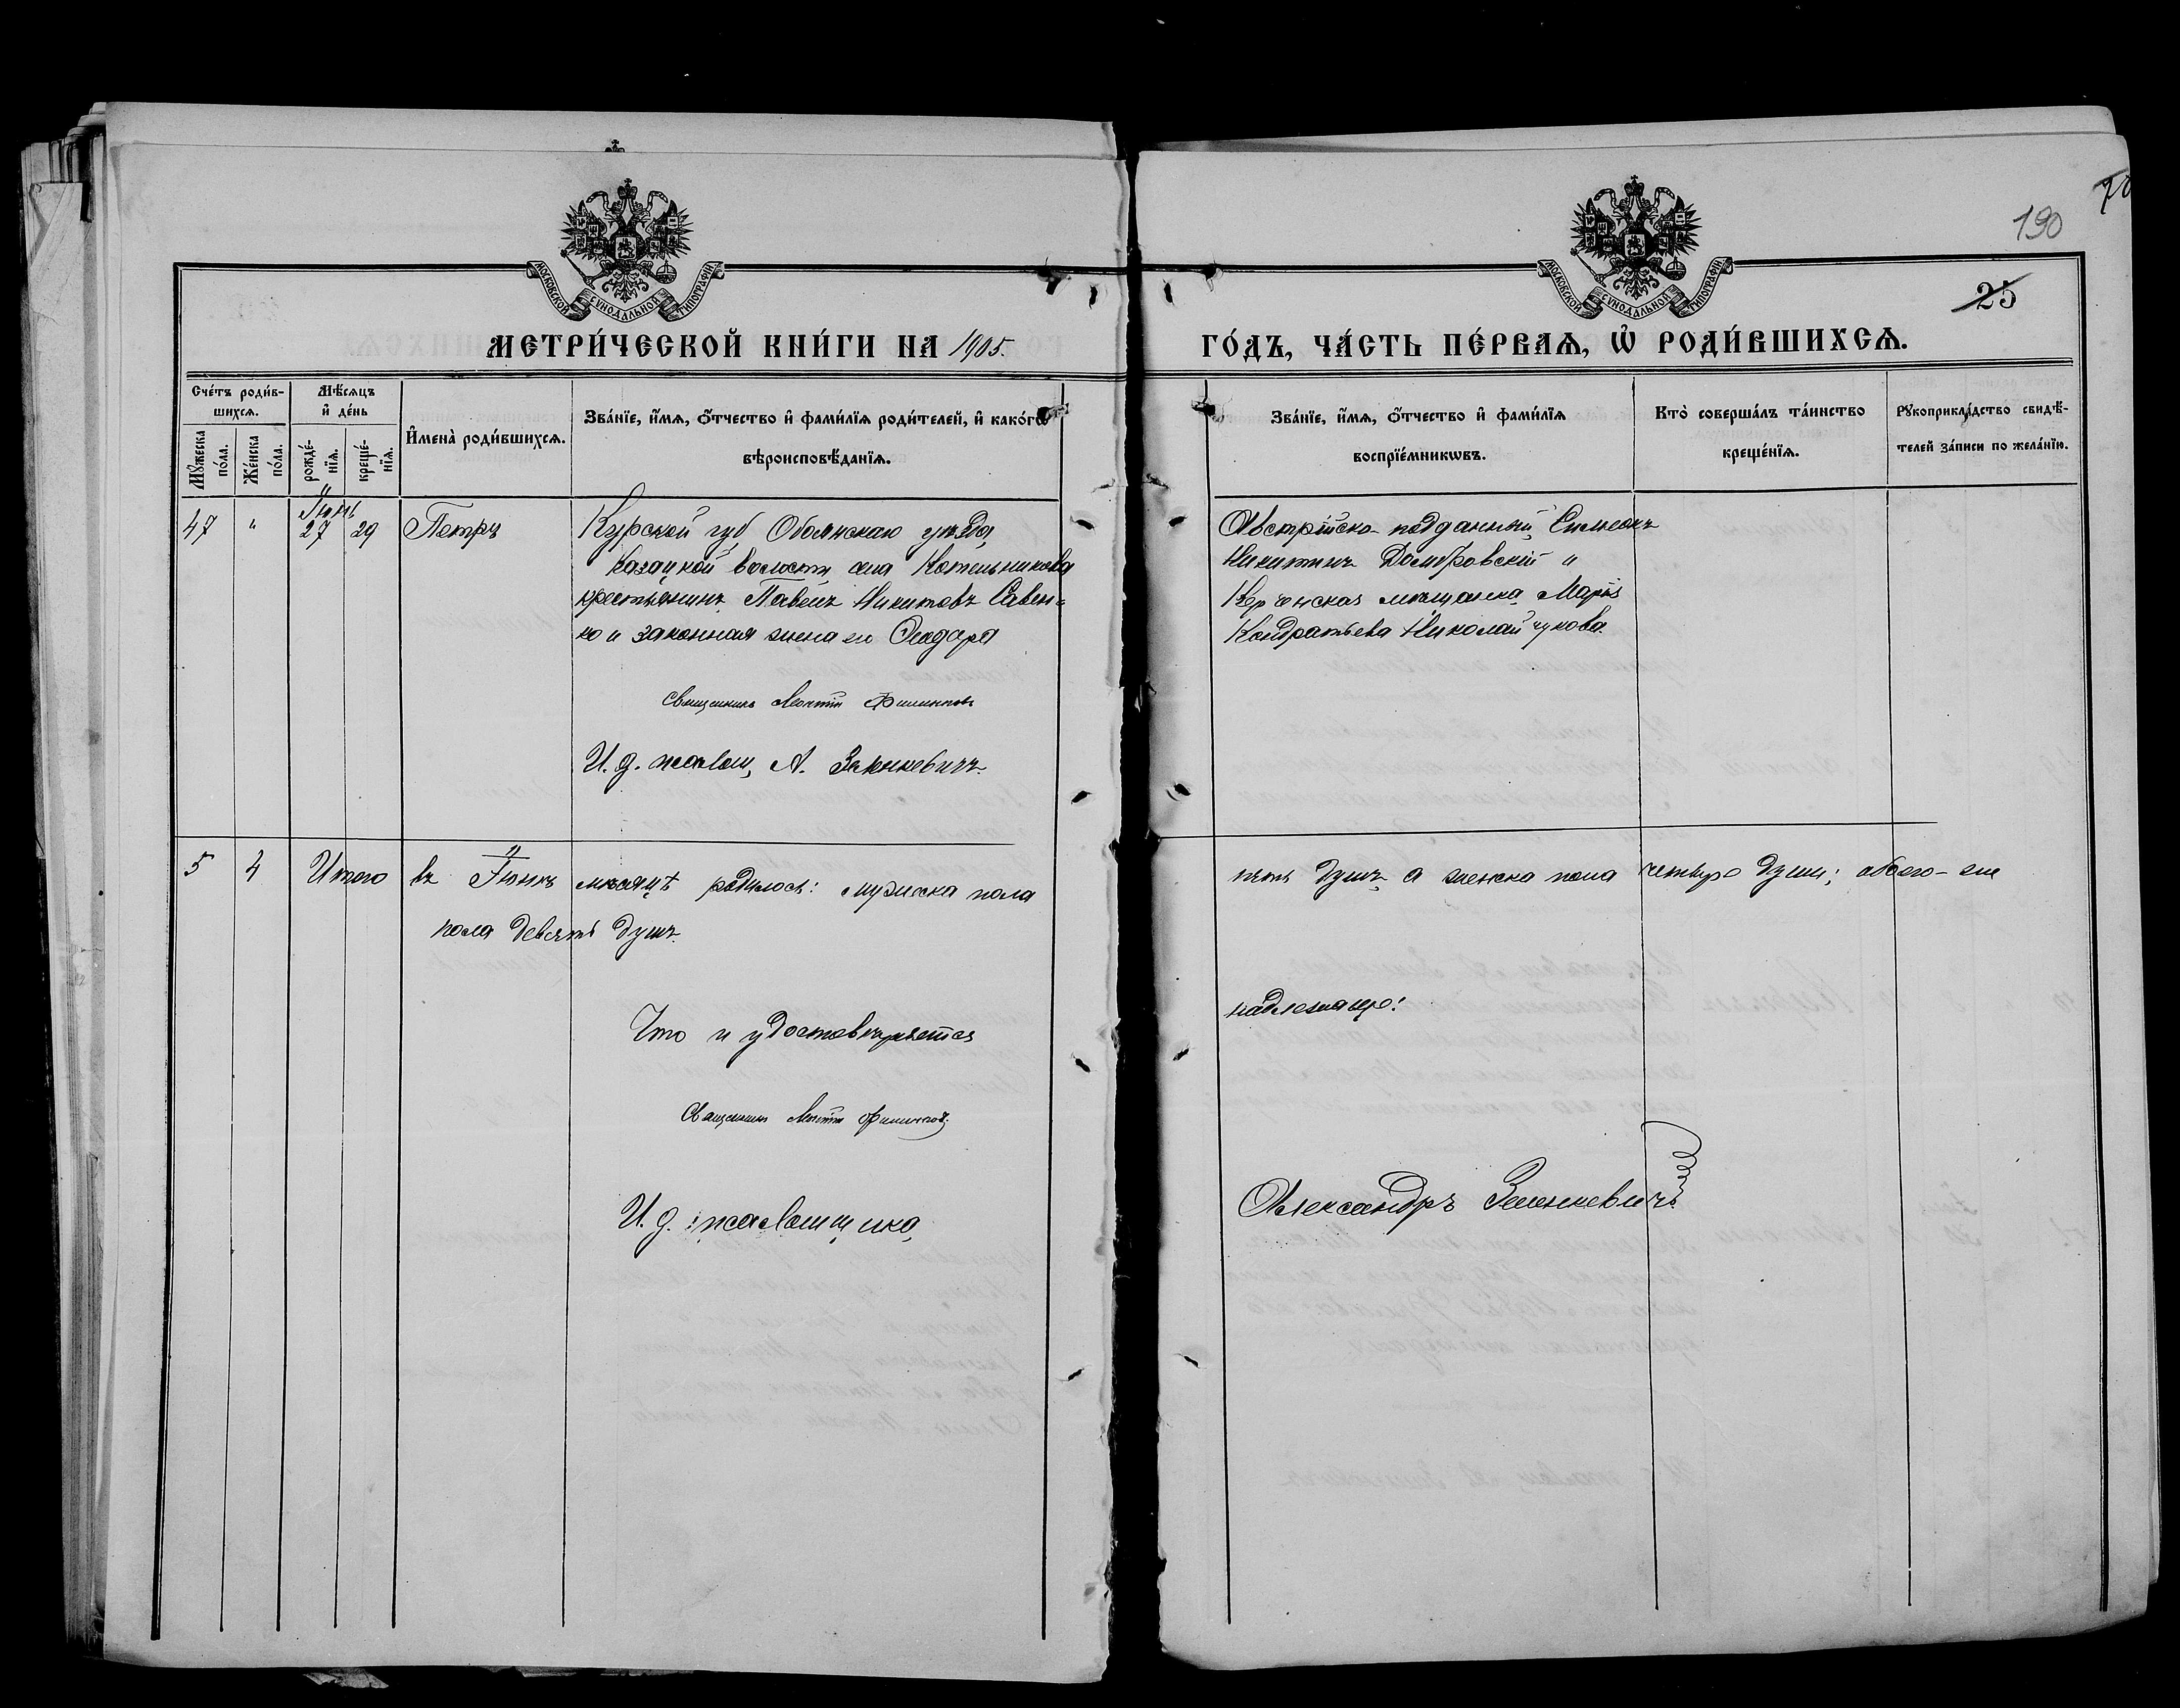 МОСКОВСКОЙ СѴНОДАЛЬНОЙ ТИПОГРАФІИ
МОСКОВСКОЙ СѴНОДАЛЬНОЙ ТИПОГРАФІИ
190
25
МЕТРИ́ЧЕСКОЙ КНИ́ГИ НА 1905.
ГО́ДЪ, ЧА́СТЬ ПЕ́РВАѦ, Ѡ҆ РОДИ́ВШИХСѦ.
Сче́тъ роди́в-
шихсѧ.
Мꙋ́жеска
по́ла.
Же́нска
по́ла.
Мѣ́сѧцъ
и҆ де́нь
рожде́-
нїѧ.
креще́-
нїѧ.
И҆мена̀ роди́вшихсѧ.
Зва́нїе, и҆́мѧ, ѻ҆́тчество и҆ фами́лїѧ роди́телей, и҆ како́гѡ
вѣроисповѣ́данїѧ.
Зва́нїе, и҆́мѧ, ѻ҆́тчество и҆ фами́лїѧ
воспрїе́мникѡвъ.
Кто̀ соверша́лъ та́инство
креще́нїѧ.
Рꙋкоприкла́дство свидѣ́-
телей за́писи по жела́нїю.
Іюнь
47 " 27 29 Петръ
Курской губ Обоянскаго уѣзда,
Казацкой волости села Котельникова
крестьянинъ Павелъ Никитовъ Савен-
ко и законная жена его
Священникъ Леонтій
И. д. псалом, А. Зенькевичъ.
Австрійско-подданный Симеонъ
Никитинъ Домбровскій "
Керченская мѣщанка Марія
Кондратьева Николайчукова.
5 4 Итого въ Іюнѣ мѣсяцѣ родилось: мужеска пола
пять душъ а женска пола четыре души; обоего-же
пола девять душъ.
Что и удостовѣряется
надлежаще:
Священникъ Леонтій
И. д. псаломщика,
Александръ Зенькевичъ